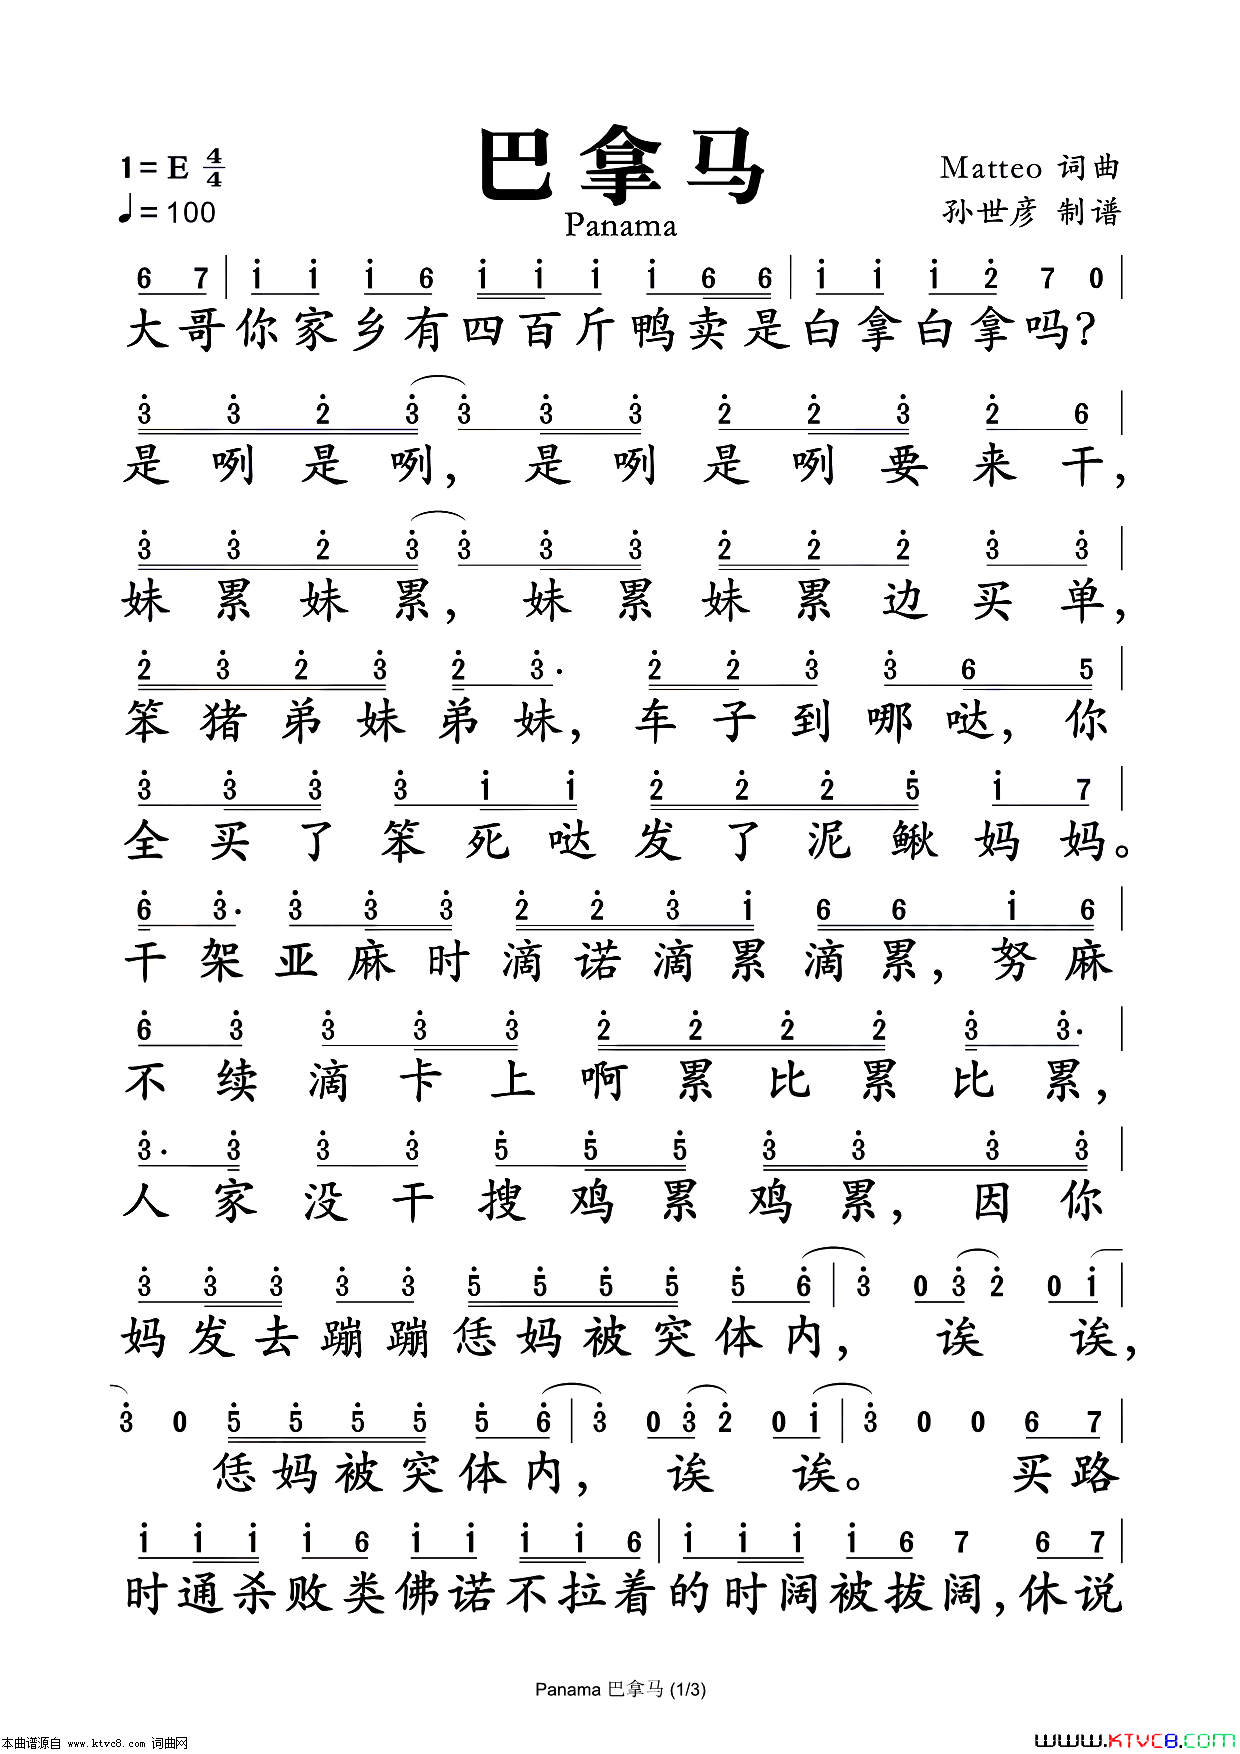 巴拿马
Panama
1=E 4/4
♩=100
Matteo 词曲
孙世彦 制谱
6 7 | i i i 6 i i i i 6 6 | i i i 2̇ 7 0 |
大哥你家乡有四百斤鸭卖是白拿白拿吗?
3̇ 3̇ 2̇ 3̇ 3̇ 3̇ 3̇ 2̇ 2̇ 3̇ 2̇ 6 |
是咧是咧，是咧是咧要来干，
3̇ 3̇ 2̇ 3̇ 3̇ 3̇ 3̇ 2̇ 2̇ 2̇ 3̇ 3̇ |
妹累妹累，妹累妹累边买单，
2̇ 3̇ 2̇ 3̇ 2̇ 3̇· 2̇ 2̇ 3̇ 3̇ 6 5̇ |
笨猪弟妹弟妹，车子到哪哒，你
3̇ 3̇ 3̇ 3̇ i i 2̇ 2̇ 2̇ 5̇ i 7 |
全买了笨死哒发了泥鳅妈妈。
6̇ 3̇· 3̇ 3̇ 3̇ 2̇ 2̇ 3̇ i 6 6 i 6 |
干架亚麻时滴诺滴累滴累，努麻
6̇ 3̇ 3̇ 3̇ 3̇ 2̇ 2̇ 2̇ 2̇ 3̇ 3̇· |
不续滴卡上啊累比累比累，
3̇· 3̇ 3̇ 3̇ 5̇ 5̇ 5̇ 3̇ 3̇ 3̇ 3̇ |
人家没干搜鸡累鸡累，因你
3̇ 3̇ 3̇ 3̇ 3̇ 5̇ 5̇ 5̇ 5̇ 5̇ 6̇ | 3̇ 0 3̇ 2̇ 0 i |
妈发去蹦蹦恁妈被突体内，诶诶，
3̇ 0 5̇ 5̇ 5̇ 5̇ 5̇ 6̇ | 3̇ 0 3̇ 2̇ 0 i | 3̇ 0 0 6 7 |
恁妈被突体内，诶诶。买路
i i i i 6 i i i i 6 | i i i i 6 7 6 7 |
时通杀败类佛诺不拉着的时阔被拔阔，休说
Panama 巴拿马 (1/3)
本曲谱源自 www.ktvc8.com 词曲网
www.KTVC8.com